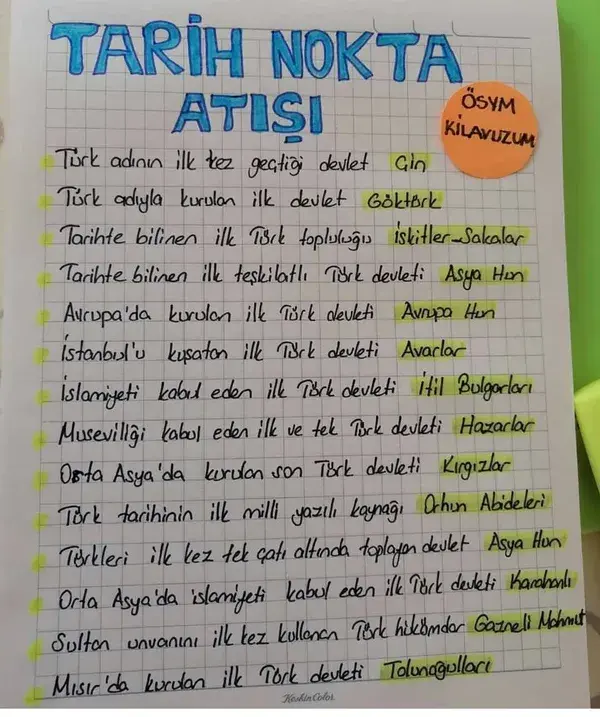 TARİH NOKTA
ATIŞI
ÖSYM
KİLAVUZUM
Türk adının ilk kez geçtiği devlet Çin
Türk adıyla kurulan ilk devlet Göktürk
Tarihte bilinen ilk Türk topluluğu İskitler-Sakalar
Tarihte bilinen ilk teşkilatlı Türk devleti Asya Hun
Avrupa'da kurulan ilk Türk devleti Avrupa Hun
İstanbul'u kuşatan ilk Türk devleti Avarlar
İslamiyeti kabul eden ilk Türk devleti İtil Bulgarları
Musevilliği kabul eden ilk ve tek Türk devleti Hazarlar
Orta Asya'da kurulan son Türk devleti Kırgızlar
Türk tarihinin ilk milli yazılı kaynağı Orhun Abideleri
Türkleri ilk kez tek çatı altında toplayan devlet Asya Hun
Orta Asya'da islamiyeti kabul eden ilk Türk devleti Karahanlı
Sultan unvanını ilk kez kullanan Türk hükümdar Gazneli Mahmut
Mısır'da kurulan ilk Türk devleti Tolunoğulları
KeskinColor